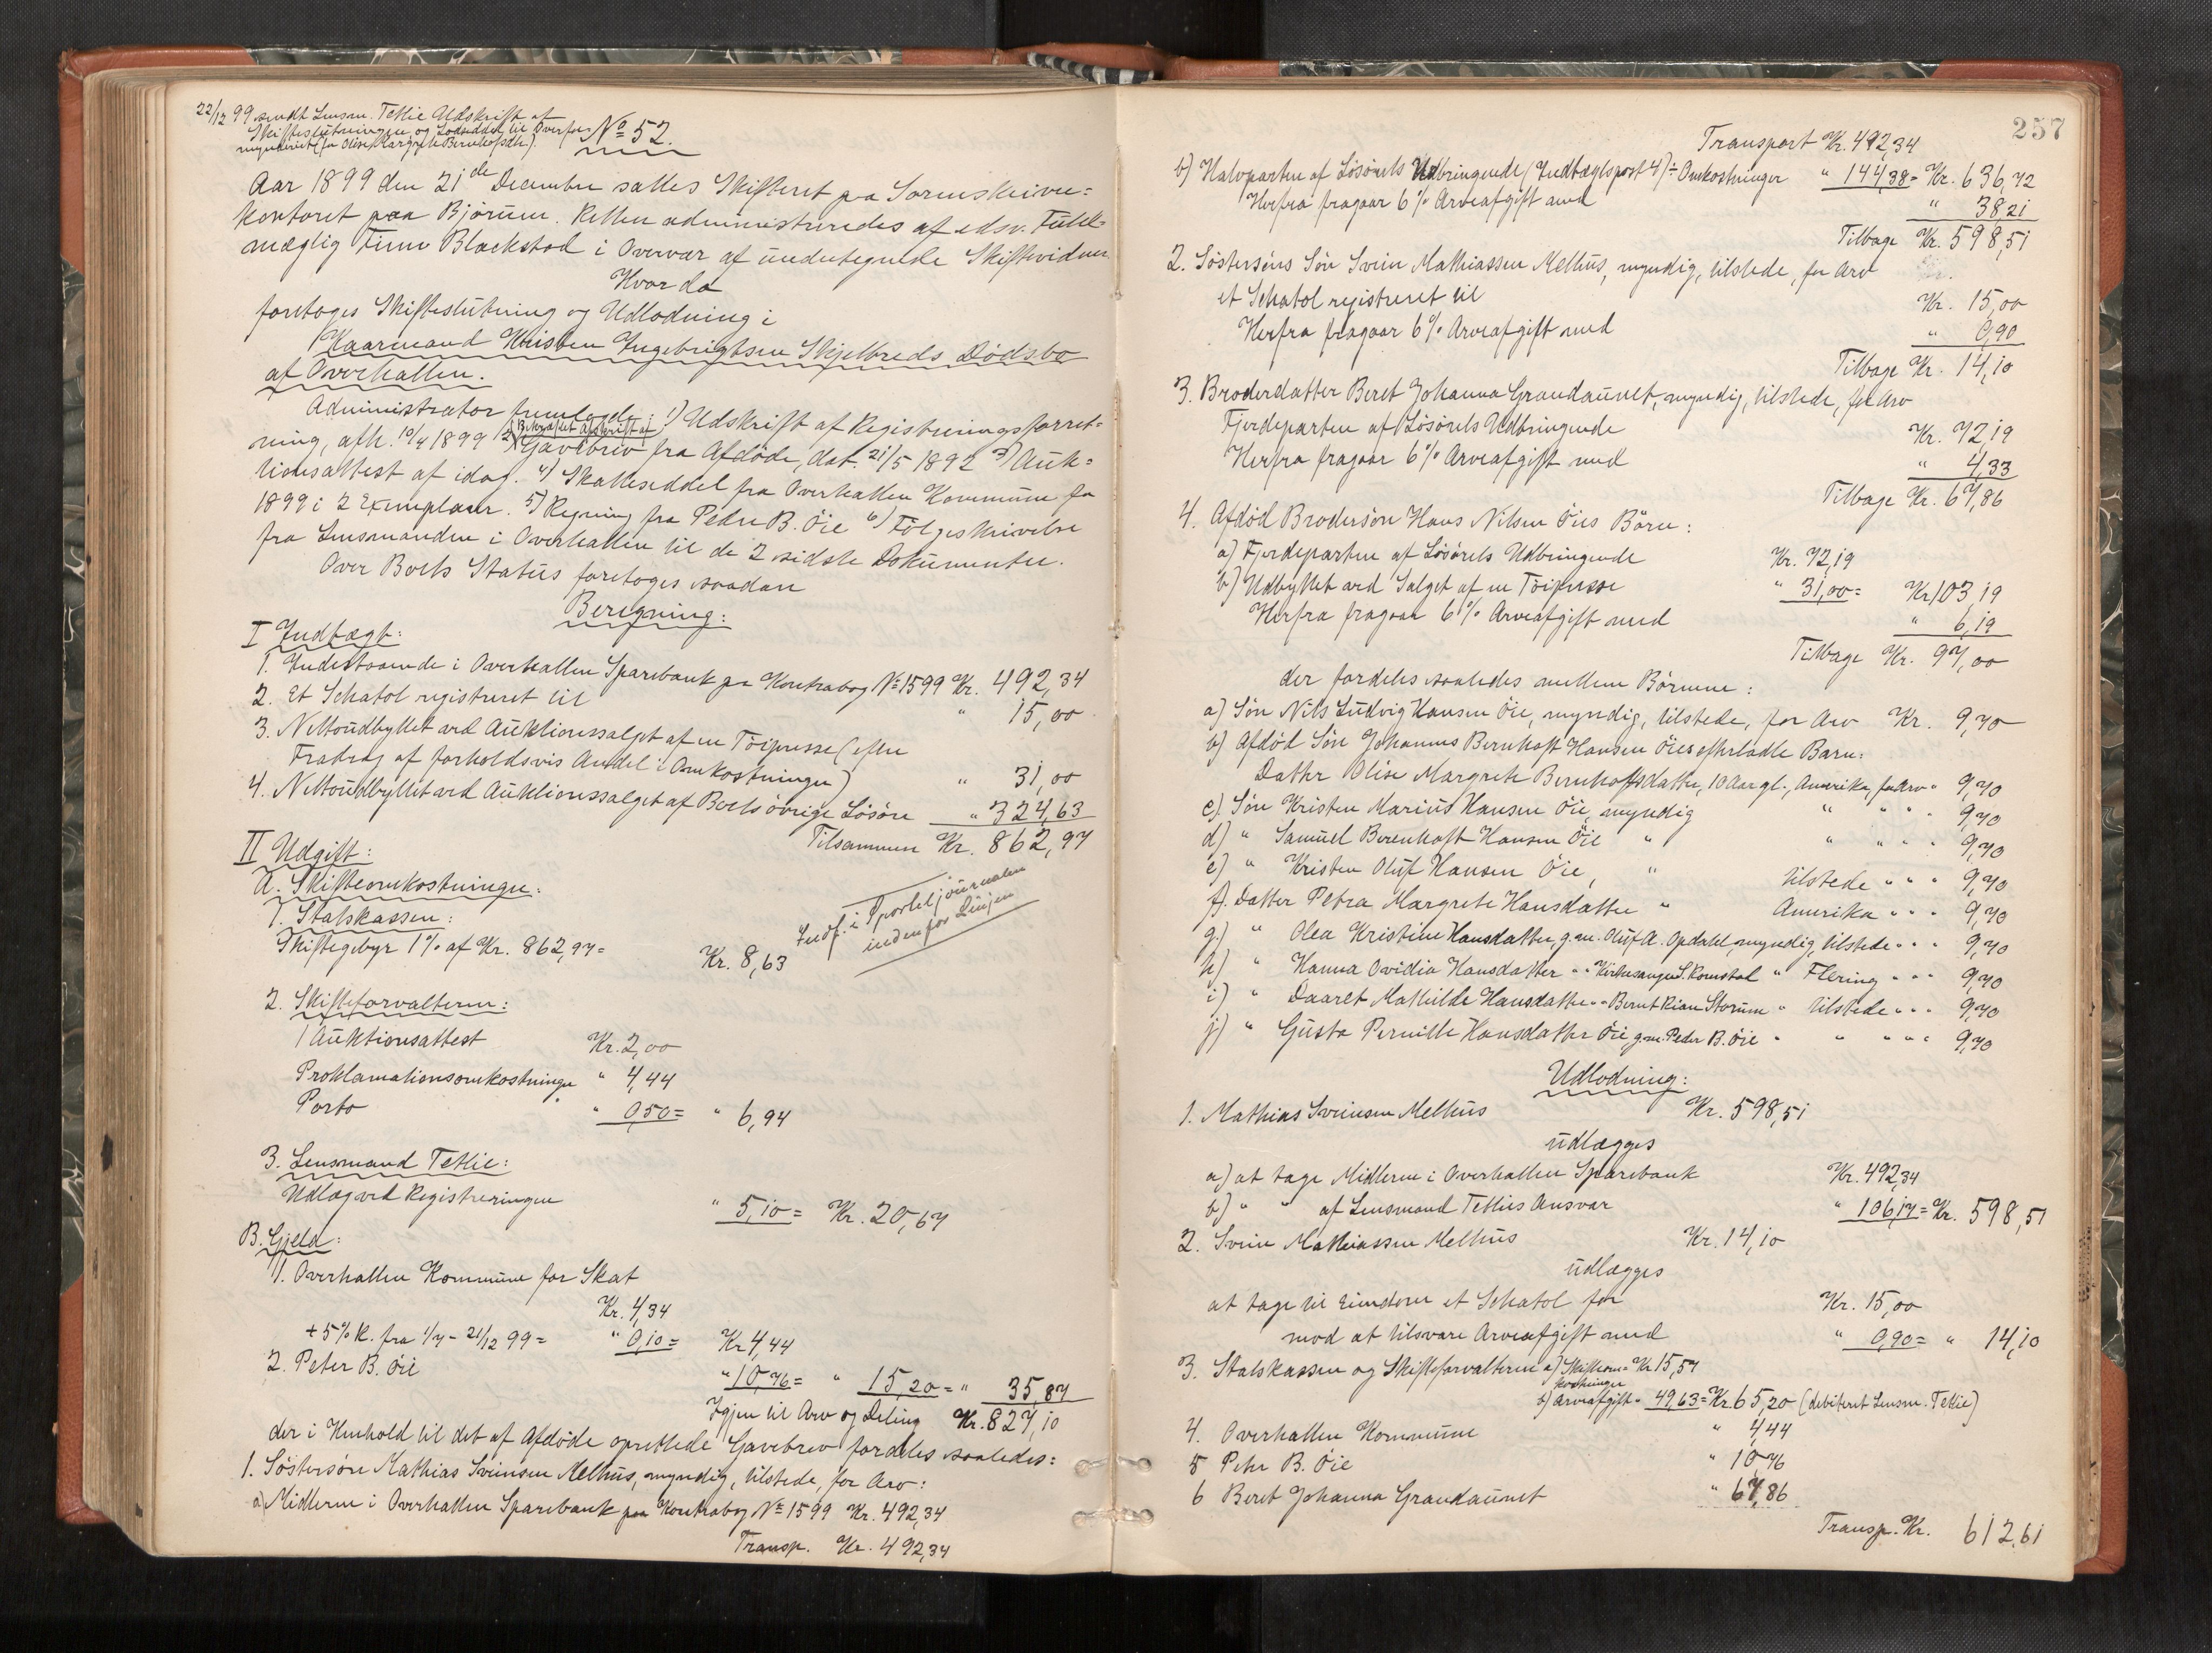 22/12 99 sendt Lensm. Tetlie Udskrift af
Skifteslutningen og Lodseddel til Overfor-
mynderiet (for Olise Margrete Bernhoftsdtr.)
No 52.
Aar 1899 den 21de December sattes Skifteret paa Sorenskriver=
kontoret paa Bjørum. Retten administreredes af edsv. Fuld=
mægtig Finn Blackstad i Overvær af undertegnede Skiftevidner
Hvorda
foretoges Skifteslutning og Udlodning i
Kaarmand Kristen Ingebrigtsen Skjelbreds Dødsbo
af Overhallen.
Administrator fremlagde: 1) Udskrift af Registreringsforret=
ning, afh. 10/4 1899 2) Bekræftet Afskrift af Gavebrev fra Afdøde, dat. 21/5 1892 3) Auk=
tionsattest af idag. 4) Skatteseddel fra Overhallen Kommune for
1899 i 2 Exemplarer. 5) Regning fra Peder B. Öie 6) Følgeskrivelse
fra Lensmanden i Overhallen til de 2 sidste Dokumenter.
Over Boets Status foretoges saadan
Beregning:
I Indtægt:
1. Indestaaende i Overhallen Sparebank paa Kontrabog No 1599 Kr. 492,34
2. Et Schatol registreret til " 15,00
3. Nettoudbyttet ved Auktionssalget af en Töipresse (efter
Fradrag af forholdsvis Andel i Omkostninger) " 31,00
4. Nettoudbyttet ved Auktionssalget af Boets øvrige Løsøre " 324,63
Tilsammen Kr. 862,97
II Udgift:
A. Skifteomkostninger:
1. Statskassen:
Skiftegebyr 1% af Kr. 862,97 = Kr. 8,63
Indf. i Sporteljournalen
indenfor Linjen
2. Skifteforvalteren:
1 Auktionsattest Kr. 2,00
Proklamationsomkostninger " 4,44
Porto " 0,50 = " 6,94
3. Lensmand Tetlie:
Udlæg ved Registreringen " 5,10 = Kr. 20,67
B. Gjeld:
1. Overhallen Kommune for Skat
Kr. 4,34
+ 5% R. fra 1/7 - 21/12 99 = " 0,10 = Kr 4,44
2. Peter B. Öie " 10,76 = " 15,20 = " 35,87
Igjen til Arv og Deling Kr. 827,10
der i Henhold til det af Afdøde oprettede Gavebrev fordeles saaledes:
1. Söstersön Mathias Sveinsen Melhus, myndig, tilstede, for Arv:
a) Midlerne i Overhallen Sparebank paa Kontrabog No 1599 Kr. 492,34
Transp. Kr. 492,34
257
Transport Kr. 492,34
b) Halvparten af Løsørets Udbringende (Indtægtspost 4) ÷ Omkostninger " 144,38 = Kr. 636,72
Herfra fragaar 6% Arveafgift med " 38,21
Tilbage Kr. 598,51
2. Söstersöns Sön Svein Mathiassen Melhus, myndig, tilstede, for Arv
et Schatol registreret til Kr. 15,00
Herfra fragaar 6% Arveafgift med " 0,90
Tilbage Kr. 14,10
3. Broderdatter Beret Johanna Grandaunet, myndig, tilstede, for Arv
Fjerdeparten af Løsørets Udbringende Kr. 72,19
Herfra fragaar 6% Arveafgift med " 4,33
Tilbage Kr. 67,86
4. Afdød Brodersön Hans Nilsen Öies Börn:
a) Fjerdeparten af Løsørets Udbringende Kr. 72,19
b) Udbyttet ved Salget af en Töipresse " 31,00 = Kr 103,19
Herfra fragaar 6% Arveafgift med " 6,19
Tilbage Kr. 97,00
der fordeles saaledes mellem Börnene:
a) Sön Nils Ludvig Hansen Öie, myndig, tilstede, for Arv Kr. 9,70
b) Afdød Sön Johannes Bernhoft Hansen Öies efterladte Barn:
Datter Olise Margrete Bernhoftsdatter, 10 Aar gl., Amerika, for Arv " 9,70
c) Sön Kristen Marius Hansen Öie, myndig " " " 9,70
d) " Samuel Berenhoft Hansen Öie " " " " " 9,70
e) " Kristen Oluf Hansen Öie, " tilstede " " " 9,70
f) Datter Petra Margrete Hansdatter " Amerika " " " 9,70
g) " Olea Kristine Hansdatter, g.m. Oluf A. Opdahl, myndig, tilstede " " " 9,70
h) " Hanna Ovidia Hansdatter " " Kirkesanger S. Komstad " Flering " " " 9,70
i) " Daaret Mathilde Hansdatter " " Bernt Rian Storum " tilstede " " " 9,70
j) " Gusta Pernille Hansdatter Öie, g.m. Peder B. Öie " " " " " 9,70
Udlodning:
1. Mathias Sveinsen Melhus Kr. 598,51
udlægges
a) at tage Midlerne i Overhallen Sparebank Kr. 492,34
b) " " af Lensmand Tetlies Ansvar " 106,17 = Kr. 598,51
2. Svein Mathiassen Melhus Kr. 14,10
udlægges
at tage til Eiendom et Schatol for Kr. 15,00
mod at tilsvare Arveafgift med " 0,90 = " 14,10
3. Statskassen og Skifteforvalteren a) Skifteom= Kr 15,57
kostninger
b) Arveafgift " 49,63 = Kr. 65,20 (debiteret Lensm. Tetlie)
4. Overhallen Kommune " 4,44
5 Peter B. Öie " 10,76
6 Beret Johanna Grandaunet " 67,86
Transp. Kr. 612,61